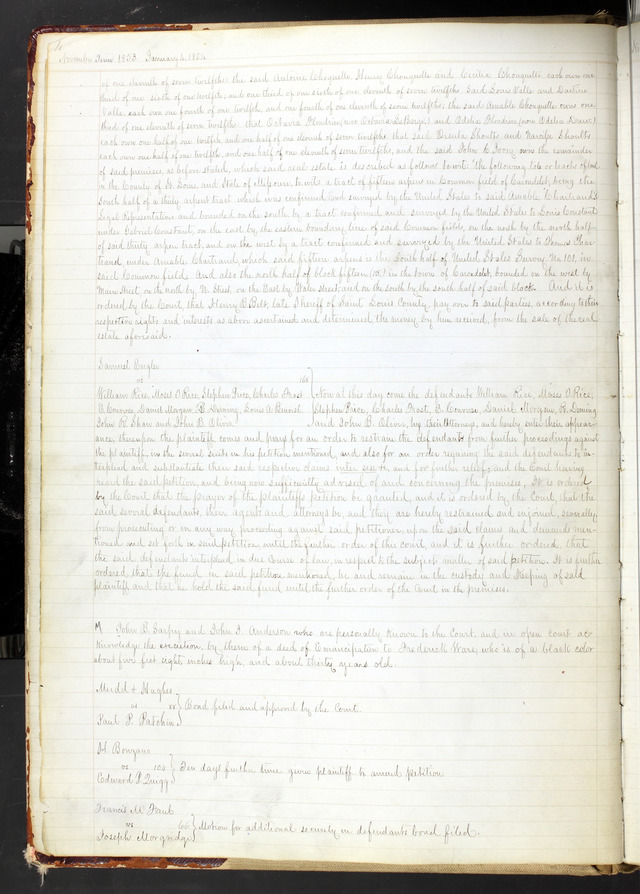 November Term 1853 January 4, 1854
of one eleventh of seven twelfths; the said Antoine Chouquette, Henry Chouquette and Cecilia Chouquette each own one
third of one sixth of one twelfth, and one third of one sixth of one eleventh of seven twelfths. Said Louis Valle and
Valle, each own one fourth of one twelfth and one fourth of one eleventh of seven twelfths; the said Amable Chouquette owns one
third of one eleventh of seven twelfths; that Octavia Flandrin (now Octavia ) and Odelia Flandrin (now Odelia )
each own one half of one twelfth and one half of one eleventh of seven twelfths; that said Ursula Shoults and Narcisse Shoults
each own one half of one twelfth and one half of one eleventh of seven twelfths, and the said John C. Ivory owns the remainder
of said premises, as before stated, which said real estate is described as follows towit: the following lots or tracts of land
in the County of St. Louis, and State of Missouri, to wit: a tract of fifteen arpens in Common field of Carondelet, being the
South half of a thirty arpent tract which was confirmed and surveyed by the United States to said Amable Chartrand's
Legal Representatives and bounded on the south by a tract confirmed and surveyed by the United States to Louis Constant
under Gabriel Constant, on the east by the eastern boundary line of said Common fields, on the north by the north half
of said thirty arpen tract, and on the west by a tract confirmed and surveyed by the United States to Thomas Char-
trand under Amable Chartrand, which said fifteen arpens is the South half of United States Survey No 101, in
said Common fields. And also the north half of block fifteen (15) in the town of Carondelet, bounded on the west by
Main Street, on the north by N. Street, on the East by Water Street, and on the south by the south half of said block. And it is
ordered by the Court, that Henry B. Belt, late Sheriff of Saint Louis County, pay over to said parties, according to their
respective rights and interests as above ascertained and determined the money by him received, from the sale of the real
estate aforesaid.
Samuel Engler
vs 164
William Rice, Moses O. Rice, Stephen Price, Charles Frost, Now at this day come the defendants William Rice, Moses O. Rice,
B. Conrose, Daniel Morgan, R. Deming, Louis A. Benoist Stephen Price, Charles Frost, B. Conrose, Daniel Morgan, R. Deming
John R. Shaw and John B. Olivin. and John B. Olivin, by their Attorneys, and hereby enter their appear-
ance, thereupon the plaintiff comes and prays for an order to restrain the defendants from further proceedings against
the plaintiff, in the several suits in his petition mentioned, and also for an order requiring the said defendants to in-
terplead and substantiate their said respective claims inter se, and for further relief; and the Court having
heard the said petition, and being now sufficiently advised of and concerning the premises, It is ordered
by the Court that the prayer of the plaintiffs petition be granted, and it is ordered by the Court, that the
said several defendants, their agents and attorneys be, and they are hereby restrained and enjoined, severally
from prosecuting or in any way proceeding against said petitioner, upon the said claims and demands men-
tioned and set forth in said petition, until the further order of this court, and it is further ordered, that
the said defendants interplead in due course of law, in respect to the subject matter of said petition. It is further
ordered, that the fund in said petition mentioned, be and remain in the custody and keeping of said
plaintiff and that he hold the said fund until the further order of the Court in the premises.
John B. Sarpy and John J. Anderson who are personally known to the Court, and in open court ac-
knowledge the execution by them of a deed of emancipation to Frederick Ware, who is of a black color
about five feet eight inches high, and about thirty years old.
Mudd & Hughes
vs 88 Bond filed and approved by the Court.
Paul P. Patchin
H. Bonzano
vs 100 Ten days further time given plaintiff to amend petition
Edward P. Quigg
Francis M. Paul
vs 60 Motion for additional security in defendants bond filed.
Joseph Morgridge